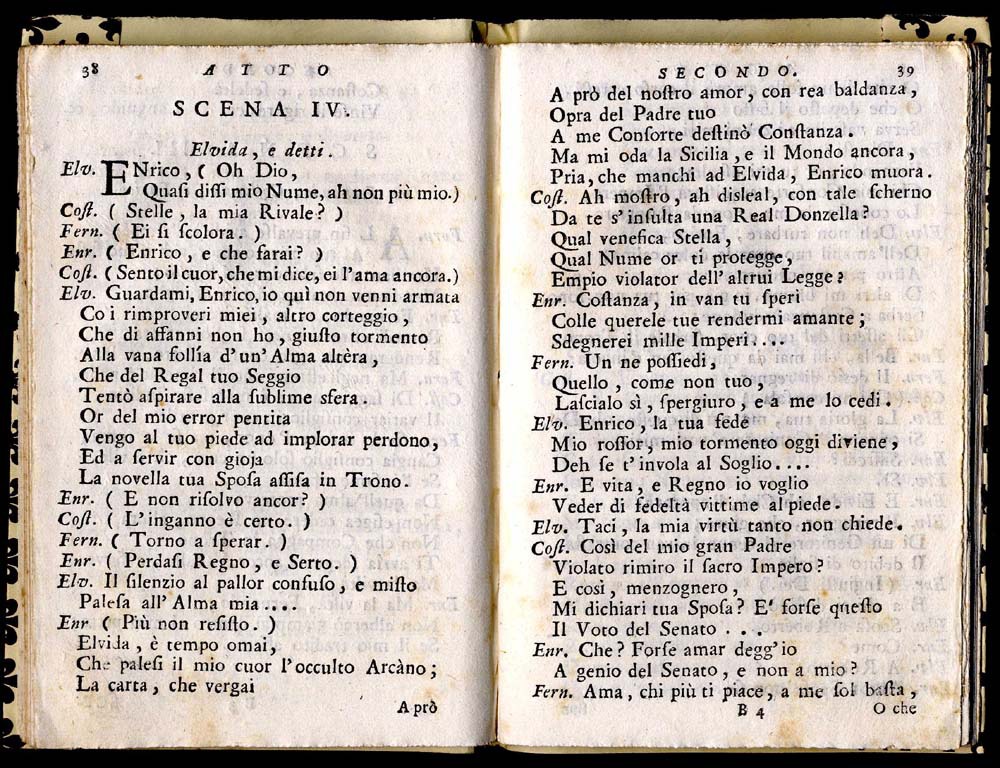 38
ATTO
SCENA IV.
Elvida, e detti.
Elv. ENrico, ( Oh Dio,
Quaſi diſſi mio Nume, ah non più mio.)
Coſt. ( Stelle, la mia Rivale? )
Fern. ( Ei ſi ſcolora. )
Enr. ( Enrico, e che farai? )
Coſt. ( Sento il cuor, che mi dice, ei l'ama ancora.)
Elv. Guardami, Enrico, io quì non venni armata
Co i rimproveri miei, altro corteggio,
Che di affanni non ho, giuſto tormento
Alla vana follìa d'un' Alma altèra,
Che del Regal tuo Seggio
Tentò aſpirare alla ſublime sfera.
Or del mio error pentita
Vengo al tuo piede ad implorar perdono,
Ed a ſervir con gioja
La novella tua Spoſa aſſiſa in Trono.
Enr. ( E non riſolvo ancor? )
Coſt. ( L'inganno è certo. )
Fern. ( Torno a ſperar. )
Enr. ( Perdaſi Regno, e Serto. )
Elv. Il ſilenzio al pallor confuſo, e miſto
Paleſa all' Alma mia....
Enr. ( Più non reſiſto. )
Elvida, è tempo omai,
Che paleſi il mio cuor l'occulto Arcàno;
La carta, che vergai
A prò
SECONDO.
39
A prò del noſtro amor, con rea baldanza,
Opra del Padre tuo
A me Conſorte deſtinò Conſtanza.
Ma mi oda la Sicilia, e il Mondo ancora,
Pria, che manchi ad Elvida, Enrico muora.
Coſt. Ah moſtro, ah disleal, con tale ſcherno
Da te s'inſulta una Real Donzella?
Qual venefica Stella,
Qual Nume or ti protegge,
Empio violator dell' altrui Legge?
Enr. Coſtanza, in van tu ſperi
Colle querele tue rendermi amante;
Sdegnerei mille Imperi....
Fern. Un ne poſſiedi,
Quello, come non tuo,
Laſcialo sì, ſpergiuro, e a me lo cedi.
Elv. Enrico, la tua fede
Mio roſſor, mio tormento oggi diviene,
Deh ſe t'invola al Soglio....
Enr. E vita, e Regno io voglio
Veder di fedeltà vittime al piede.
Elv. Taci, la mia virtù tanto non chiede.
Coſt. Così del mio gran Padre
Violato rimiro il ſacro Impero?
E così, menzognero,
Mi dichiari tua Spoſa? E' forſe queſto
Il Voto del Senato . . .
Enr. Che? Forſe amar degg'io
A genio del Senato, e non a mio?
Fern. Ama, chi più ti piace, a me ſol baſta,
B 4
O che